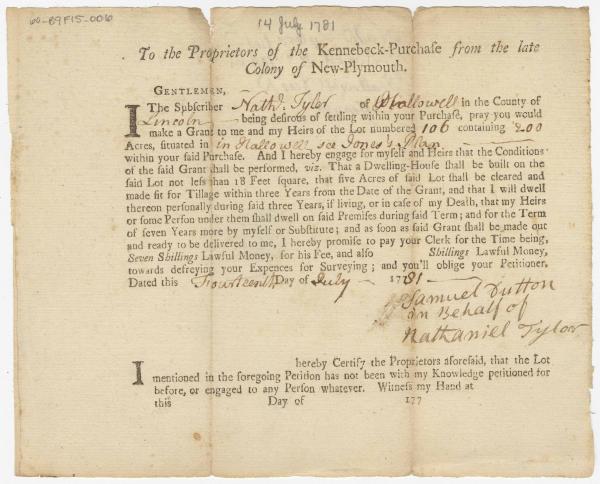 60-B9F15-006
14 July 1781
To the Proprietors of the Kennebeck-Purchase from the late
Colony of New-Plymouth.
GENTLEMEN,
I The Subscriber Nath.l Tyler of Hallowell in the County of
Lincoln being desirous of settling within your Purchase, pray you would
make a Grant to me and my Heirs of the Lot numbered 106 containing 200
Acres, situated in in Hallowell see Jones's Plan
within your said Purchase. And I hereby engage for myself and Heirs that the Conditions
of the said Grant shall be performed, viz. That a Dwelling-House shall be built on the
said Lot not less than 18 Feet square, that five Acres of said Lot shall be cleared and
made fit for Tillage within three Years from the Date of the Grant, and that I will dwell
thereon personally during said three Years, if living, or in case of my Death, that my Heirs
or some Person under them shall dwell on said Premises during said Term; and for the Term
of seven Years more by myself or Substitute; and as soon as said Grant shall be made out
and ready to be delivered to me, I hereby promise to pay your Clerk for the Time being,
Seven Shillings Lawful Money, for his Fee, and also Shillings Lawful Money,
towards defreying your Expences for Surveying; and you'll oblige your Petitioner.
Dated this Fourteenth Day of July 1781
Samuel Dutton
in Behalf of
Nathaniel Tylor
I hereby Certify the Proprietors aforesaid, that the Lot
mentioned in the foregoing Petition has not been with my Knowledge petitioned for
before, or engaged to any Person whatever. Witness my Hand at
this Day of 177